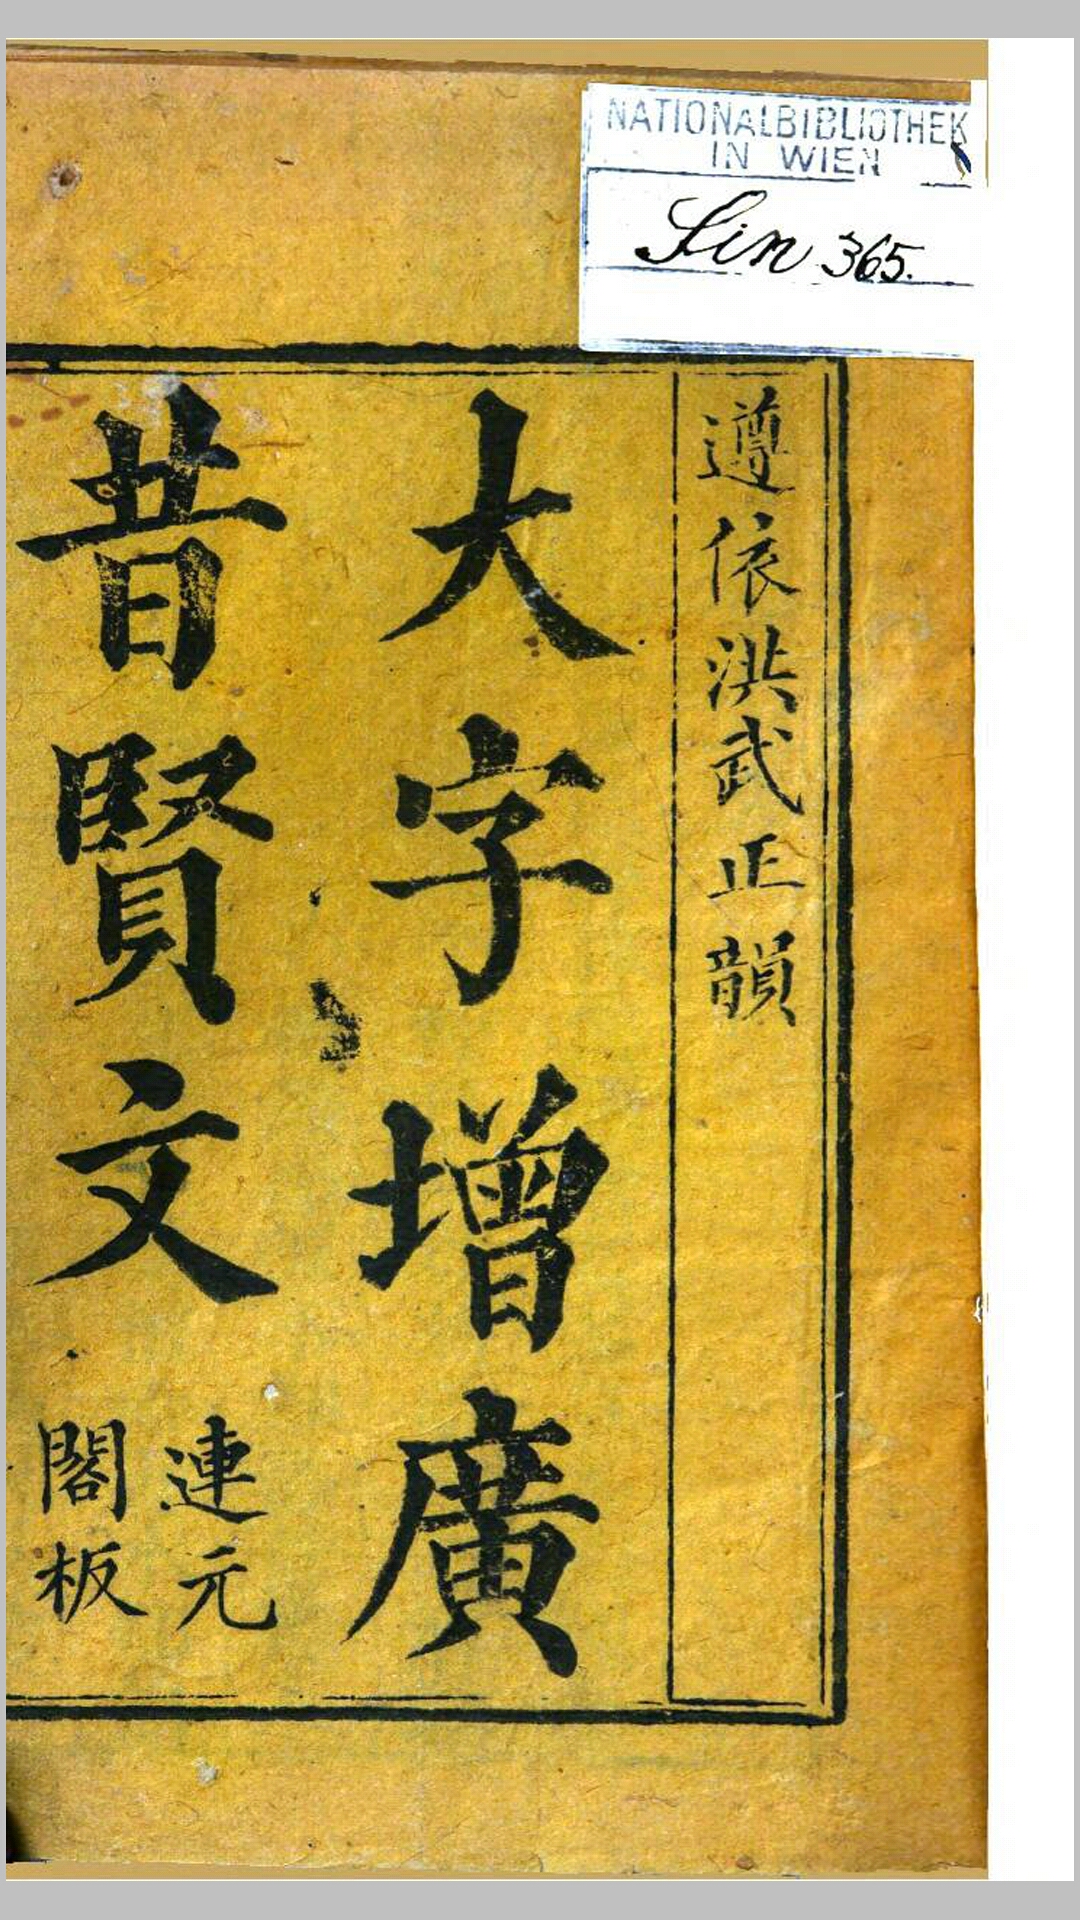 NATIONALBIBLIOTHEK
IN WIEN
Sin 365.
遵依洪武正韻
大字增廣
昔賢文
連元
閣板